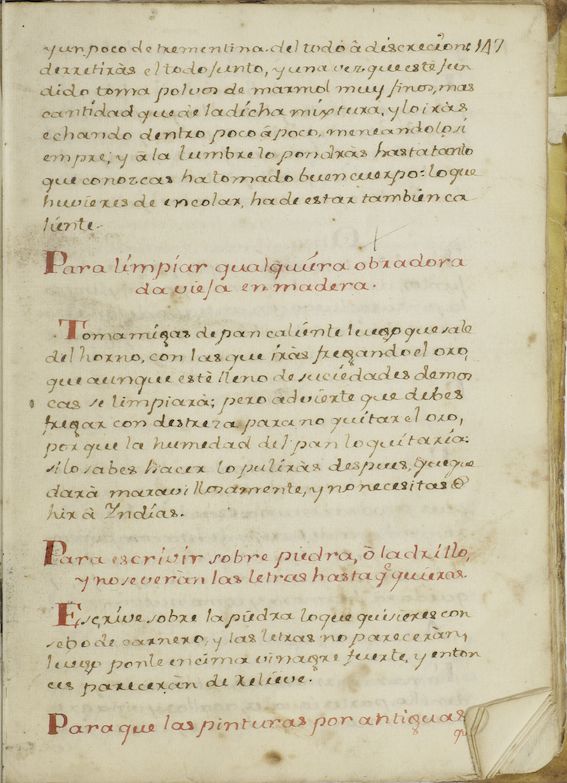 y un poco de trementina del todo à discrecion: 147
derretiràs el todo junto, y una vez que estè fun
dido toma polvos de marmol muy finos, mas
cantidad que de la dicha mixtura, y lo iràs
echando dentro poco à poco, meneandolo si
empre; y à la lumbre lo pondràs hasta tanto
que conozcas ha tomado buen cuerpo: lo que
huvieres de encolar, ha de estar tambien ca
liente.
Para limpiar qualquiera obra dora
da vieja en madera.
Toma migas de pan caliente luego que sale
del horno, con las que iràs fregando el oro,
que aunque estè lleno de suciedades de mos
cas se limpiarà; pero advierte que debes
fregar con destreza para no quitar el oro,
porque la humedad del pan lo quitaria:
si lo sabes hacer lo puliràs despues, y que que
darà maravillosamente, y no necesitas
hir à Indias.
Para escrivir sobre piedra, ò ladrillo,
y no se veràn las letras hasta q̃ quieras.
Escrive sobre la piedra lo que quisieres con
sebo de carnero, y las letras no pareceràn,
luego ponle encima vinagre fuerte, y enton
ces pareceràn de relieve.
Para que las pinturas por antiguas